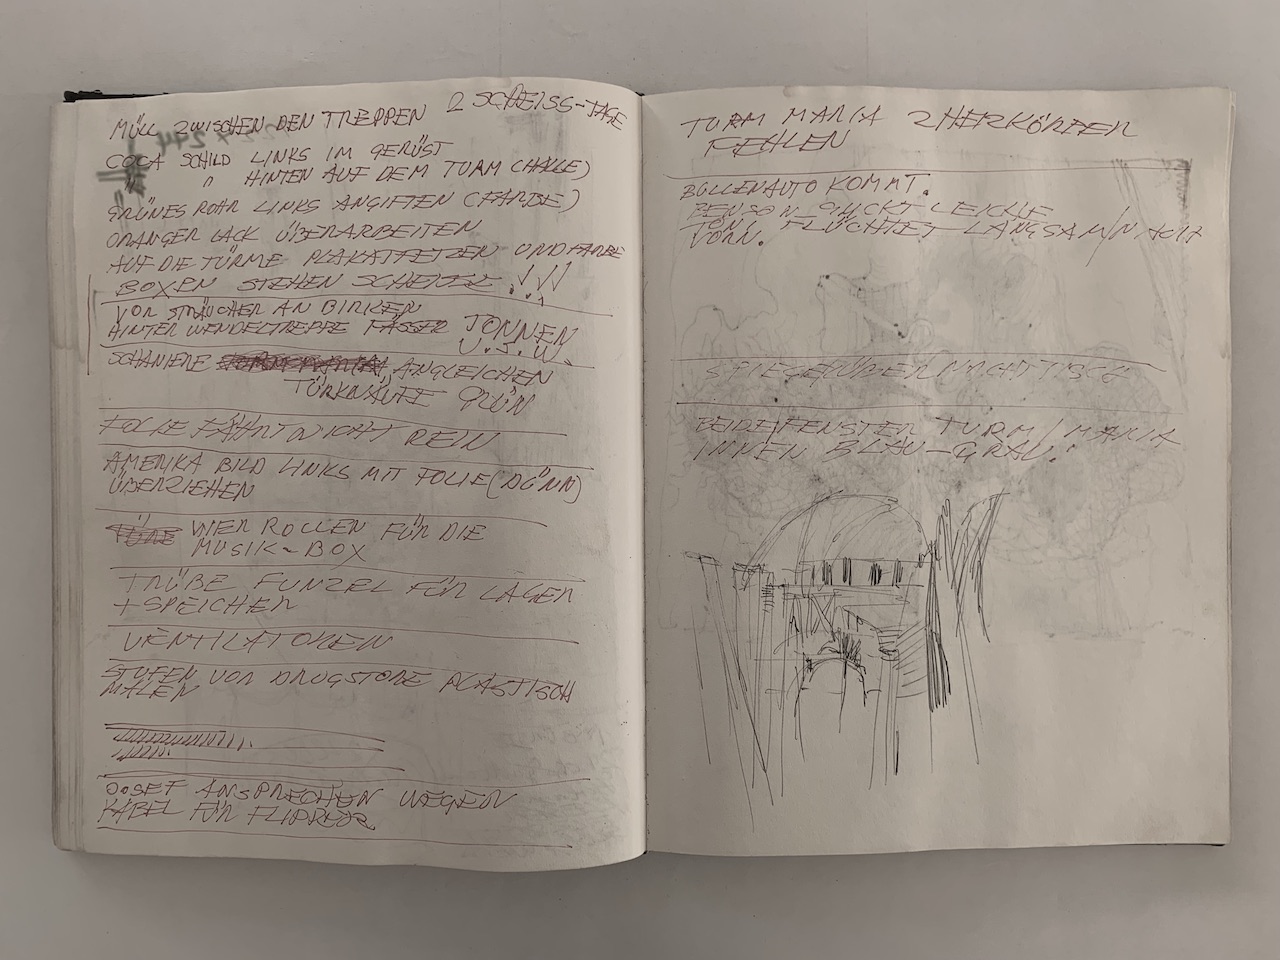 2 SCHEISS-TAGE
MÜLL ZWISCHEN DEN TREPPEN
COCA SCHILD LINKS IM GERÜST
" " HINTEN AUF DEM TURM (HALLE)
GRÜNES ROHR LINKS ANGIFTEN (FARBE)
ORANGER LACK ÜBERARBEITEN
AUF DIE TÜRME PLAKATFETZEN UND FARBE
BOXEN STEHEN SCHEISSE !!!
VOR STRÄUCHER AN BIRKEN
HINTER WENDELTREPPE FÄSSER TONNEN
U.S.W.
SCHANIERE ANGLEICHEN
TÜRKNÄUFE GRÜN
FOLIE FÄHRT NICHT REIN
AMERIKA BILD LINKS MIT FOLIE (DÜNN)
ÜBERZIEHEN
VIER ROLLEN FÜR DIE
MUSIK-BOX
TRÜBE FUNZEL FÜR LAGER
+ SPEICHER
VENTILATOREN
STUFEN VOR DRUGSTORE PLASTISCH
MALEN
JOSEF ANSPRECHEN WEGEN
KABEL FÜR FLIPPER
TURM MARIA 2 HEIZKÖRPER
FEHLEN
BULLENAUTO KOMMT.
BENSON GUCKT LEICHE
TONY FLÜCHTET LANGSAM/NACH
VORN.
SPIEGEL ÜBER NACHTTISCH
BEIDE FENSTER TURM/MARIA
INNEN BLAU-GRAU.